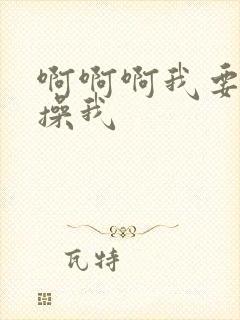 啊啊啊我要
操我
瓦特